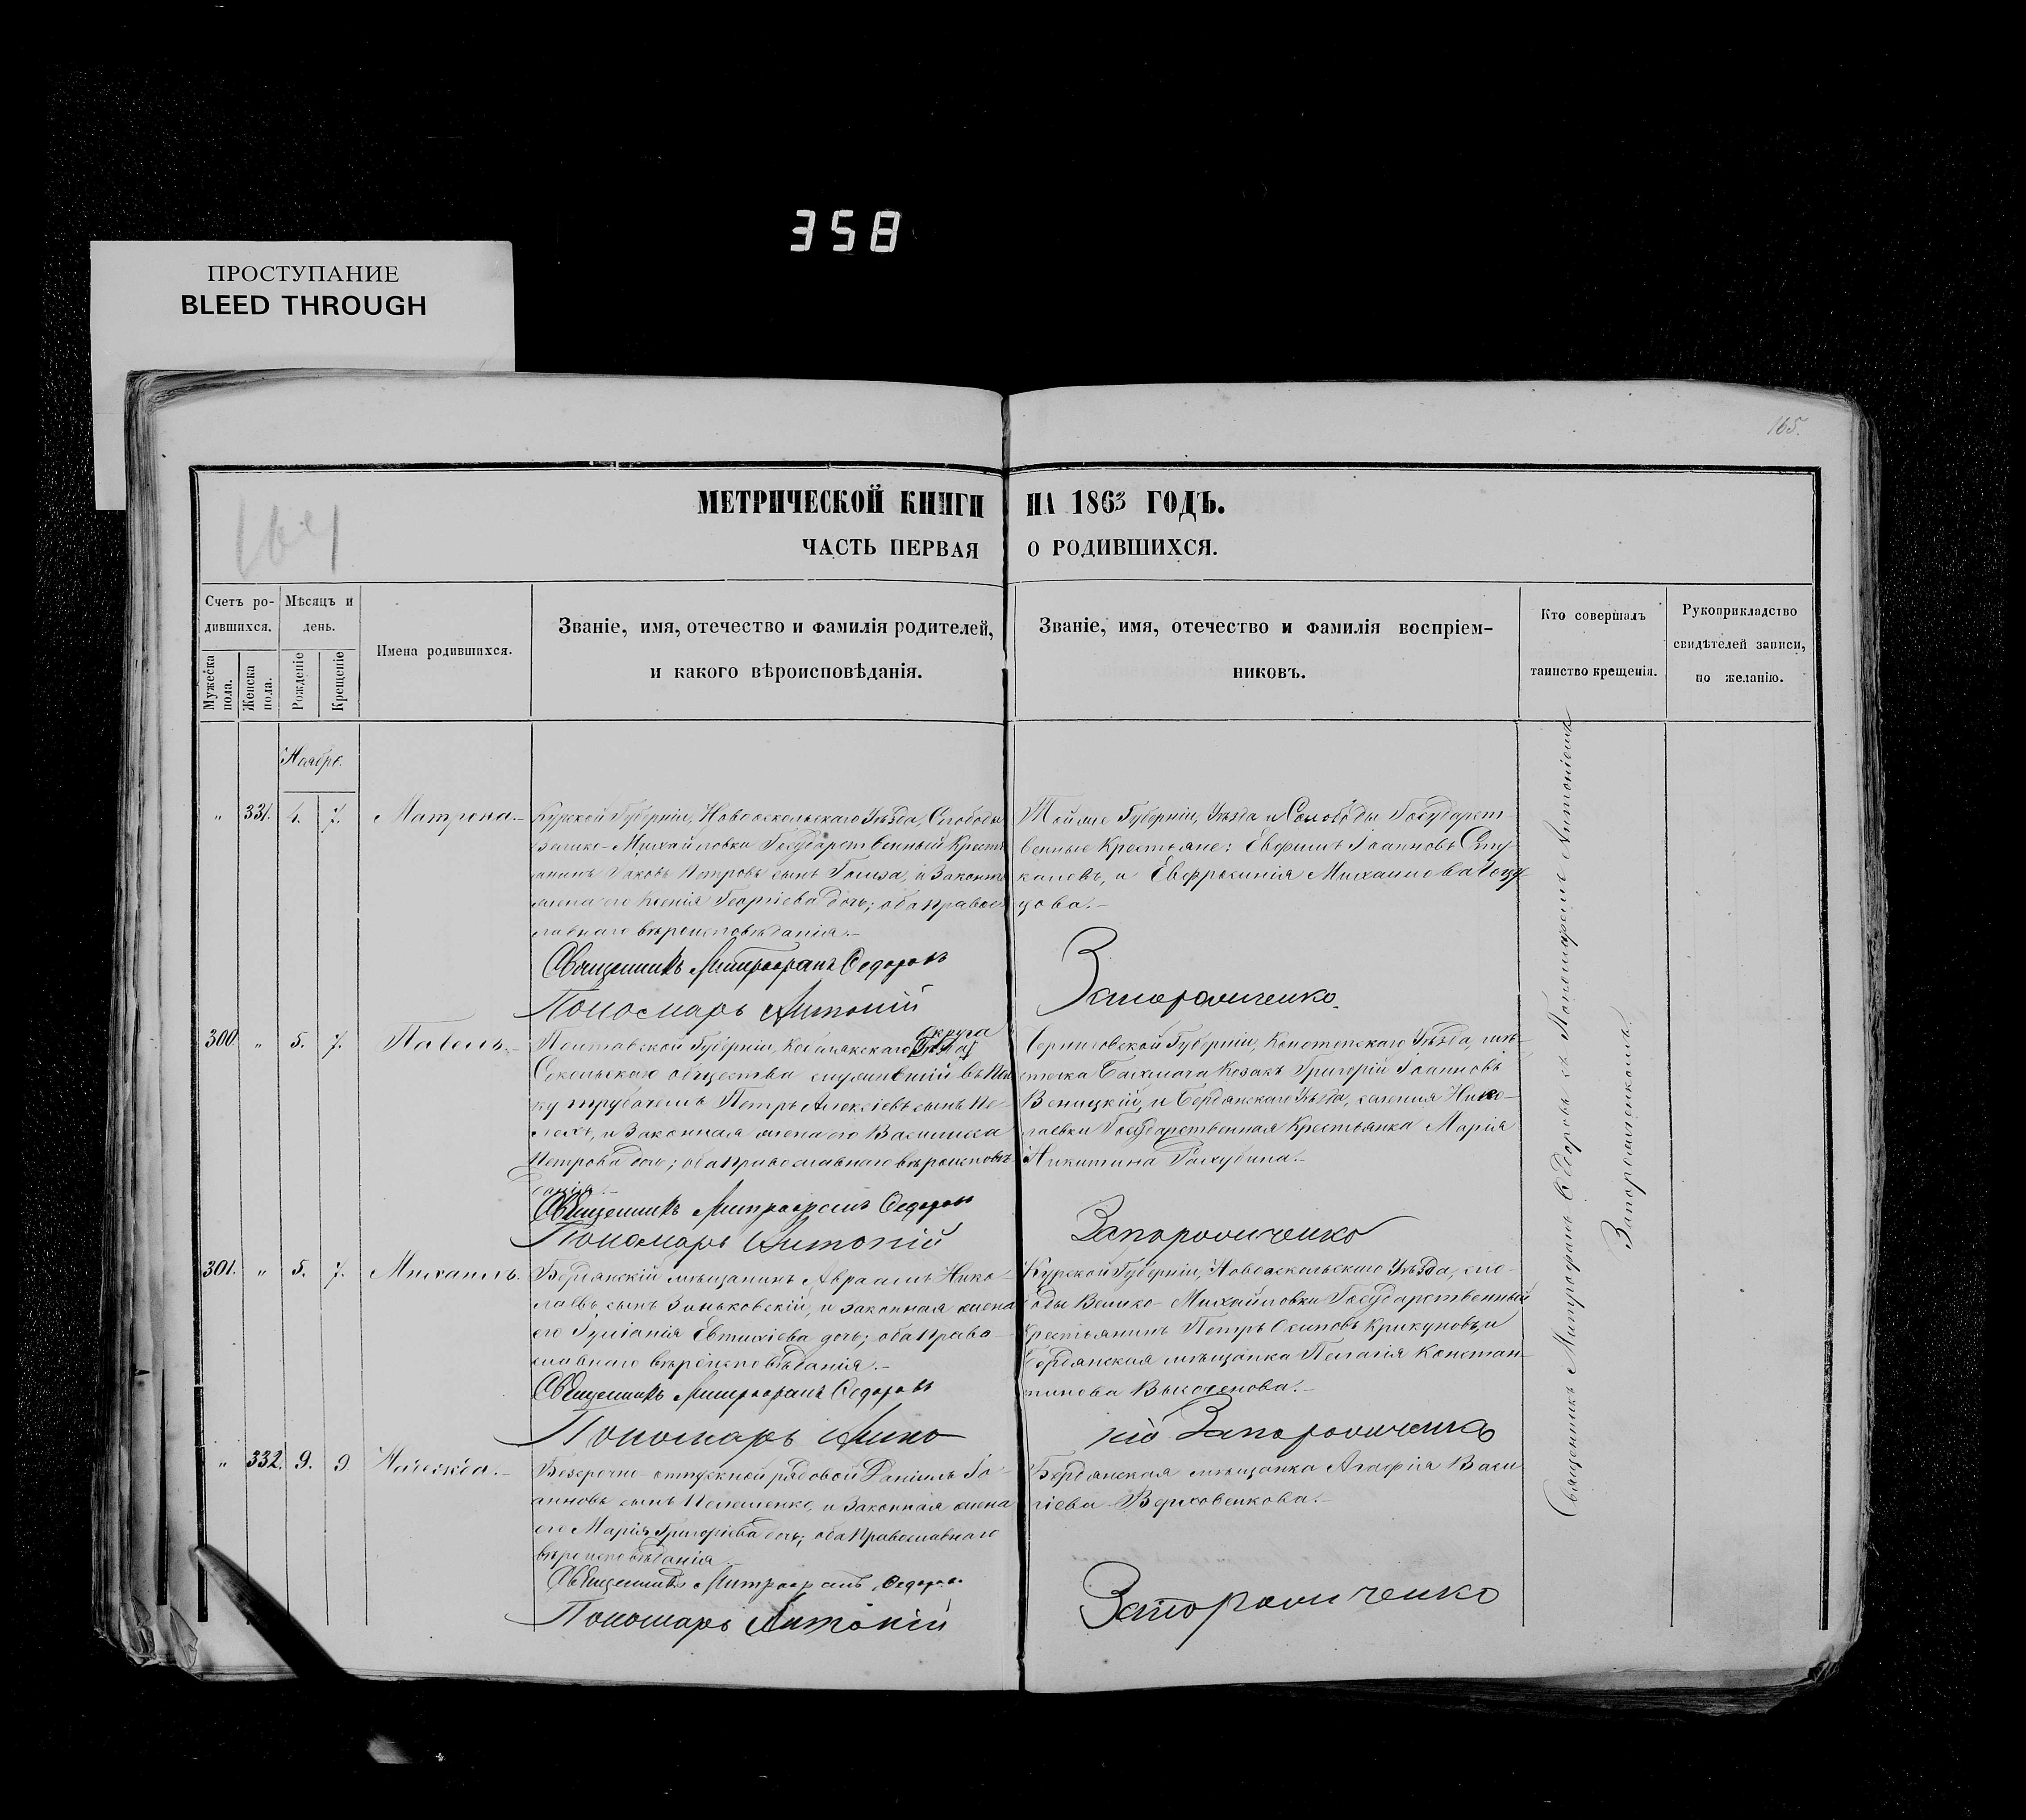 358
ПРОСТУПАНИЕ
BLEED THROUGH
165.
МЕТРИЧЕСКОЙ КНИГИ НА 1863 ГОДЪ.
ЧАСТЬ ПЕРВАЯ О РОДИВШИХСЯ.
Счетъ ро-
дившихся.
Мужеска пола.
Женска пола.
Мѣсяцъ и
день.
Рожденіе
Крещеніе
Имена родившихся.
Званіе, имя, отечество и фамилія родителей,
и какого вѣроисповѣданія.
Званіе, имя, отечество и фамилія воспріем-
никовъ.
Кто совершалъ
таинство крещенія.
Рукоприкладство
свидѣтелей записи,
по желанію.
Ноября.
" 331. 4. 7. Матрона.
Курской Губерніи, Новооскольскаго Уѣзда, Слободы
Велико-Михайловки Государственный Кресть
янинъ Іаковъ Петровъ сынъ и Законная
жена его Ксенія Георгіева дочь; оба Правос
лавнаго вѣроисповѣданія.
Тойже Губерніи, Уѣзда и Слободы Государст
венные Крестьяне: Евфимъ Іоанновъ
и Евфросинія Михаилова
Священникъ Митрофанъ Федоровъ
Пономарь Антоній Запорожченко
300. " 5. 7. Павелъ.
Полтавской Губерніи, Кобелякскаго Округа
Сокольскаго общества служившій въ пол
ку трубачемъ Петръ Алексіевъ сынъ
и Законная жена его Василиса
Петрова дочь; оба Православнаго вѣроисповѣ
данія.
Черниговской Губерніи, Конотопскаго Уѣзда, мѣс
течка Бахмача Козакъ Григорій Іоанновъ
и Бердянскаго Уѣзда, селенія Нико
лаевки Государственная Крестьянка Марія
Никитина
Священникъ Митрофанъ Федоровъ
Пономарь Антоній Запорожченко
301. " 5. 7. Михаилъ.
Бердянскій мѣщанинъ Авраамъ Нико
лаевъ сынъ Зиньковскій, и законная жена
его Іуліанія Евтихіева дочь; оба Право
славнаго вѣроисповѣданія.
Курской Губерніи, Новооскольскаго Уѣзда, сло
боды Велико-Михайловки Государственный
Крестьянинъ Петръ Осиповъ Крикуновъ, и
Бердянская мѣщанка Пелагія Констан
тинова
Священникъ Митрофанъ Федоровъ
Пономарь Антоній Запорожченко
" 332. 9. 9 Надежда.
Безсрочно-отпускной рядовой Даніилъ Іо
анновъ сынъ и Законная жена
его Марія Григоріева дочь; оба Православнаго
вѣроисповѣданія
Бердянская мѣщанка Агафія Васи
ліева Верховенкова.
Священникъ Митрофанъ Федоровъ
Пономарь Антоній Запорожченко
Священникъ Митрофанъ Федоровъ съ Пономаремъ Антоніемъ
Запорожченкомъ.